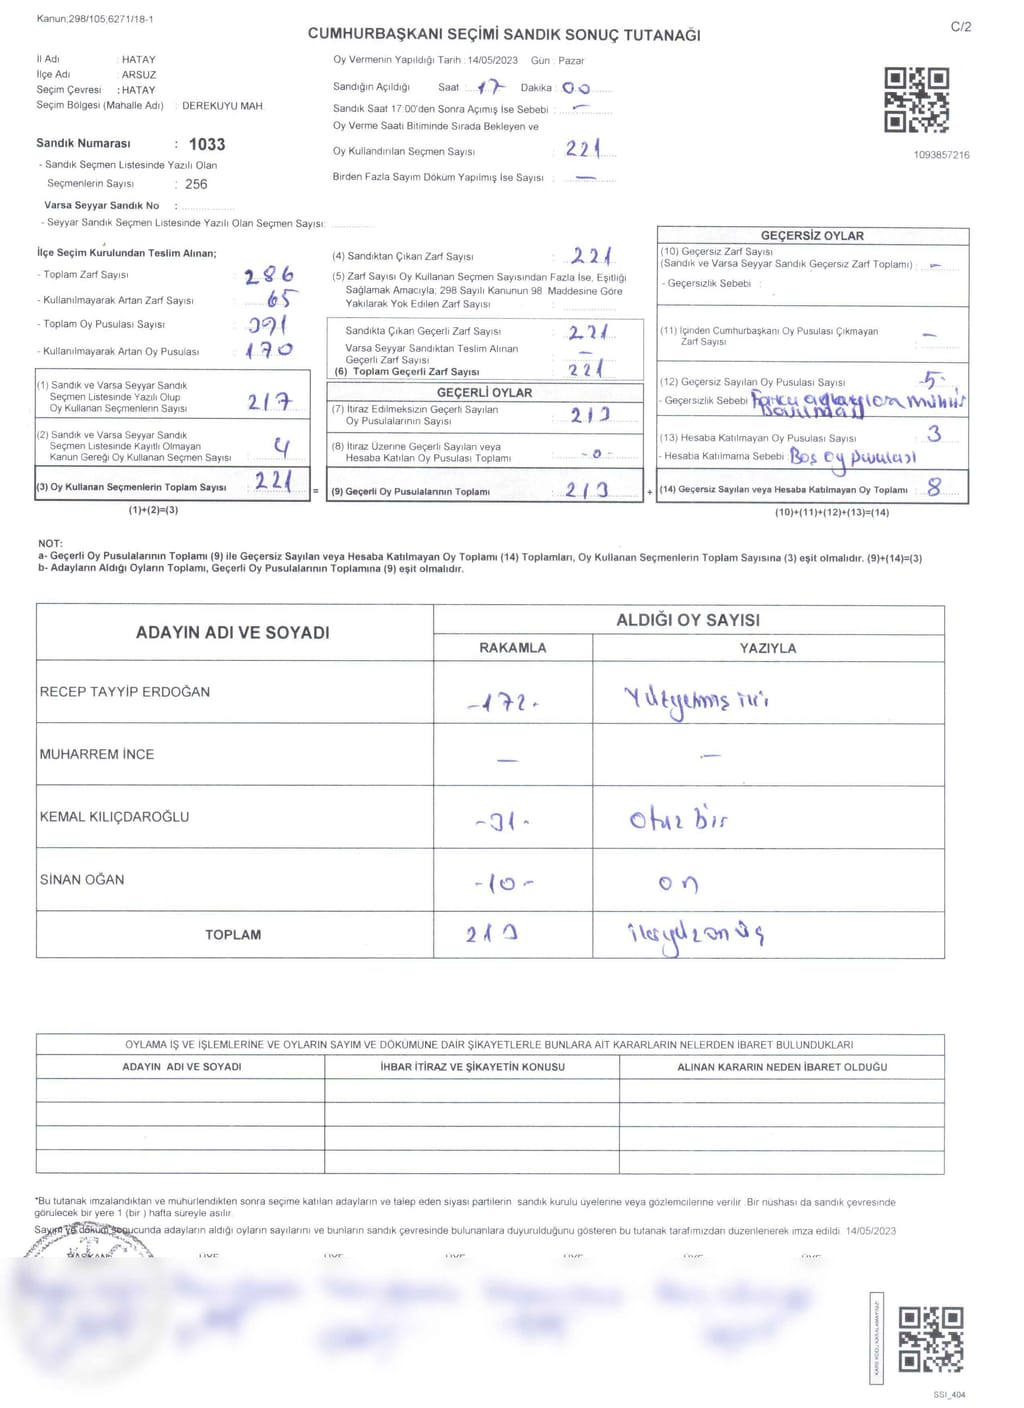 Kanun;298/105;6271/18-1
CUMHURBAŞKANI SEÇİMİ SANDIK SONUÇ TUTANAĞI
C/2
İl Adı : HATAY
İlçe Adı : ARSUZ
Seçim Çevresi : HATAY
Seçim Bölgesi (Mahalle Adı) : DEREKUYU MAH.
Sandık Numarası : 1033
- Sandık Seçmen Listesinde Yazılı Olan
Seçmenlerin Sayısı : 256
Varsa Seyyar Sandık No :
- Seyyar Sandık Seçmen Listesinde Yazılı Olan Seçmen Sayısı:
Oy Vermenin Yapıldığı Tarih : 14/05/2023 Gün : Pazar
Sandığın Açıldığı Saat : 17 Dakika : 00
Sandık Saat 17:00'den Sonra Açımış İse Sebebi : -
Oy Verme Saati Bitiminde Sırada Bekleyen ve
Oy Kullandırılan Seçmen Sayısı : 221
Birden Fazla Sayım Döküm Yapılmış İse Sayısı : -
1093857216
İlçe Seçim Kurulundan Teslim Alınan;
- Toplam Zarf Sayısı : 286
- Kullanılmayarak Artan Zarf Sayısı : 65
- Toplam Oy Pusulası Sayısı : 391
- Kullanılmayarak Artan Oy Pusulası : 170
(1) Sandık ve Varsa Seyyar Sandık
Seçmen Listesinde Yazılı Olup
Oy Kullanan Seçmenlerin Sayısı : 217
(2) Sandık ve Varsa Seyyar Sandık
Seçmen Listesinde Kayıtlı Olmayan
Kanun Gereği Oy Kullanan Seçmen Sayısı : 4
(3) Oy Kullanan Seçmenlerin Toplam Sayısı : 221
(1)+(2)=(3)
(4) Sandıktan Çıkan Zarf Sayısı : 221
(5) Zarf Sayısı Oy Kullanan Seçmen Sayısından Fazla İse, Eşitliği
Sağlamak Amacıyla; 298 Sayılı Kanunun 98. Maddesine Göre
Yakılarak Yok Edilen Zarf Sayısı :
Sandıkta Çıkan Geçerli Zarf Sayısı : 221
Varsa Seyyar Sandıktan Teslim Alınan
Geçerli Zarf Sayısı : -
(6) Toplam Geçerli Zarf Sayısı : 221
GEÇERLİ OYLAR
(7) İtiraz Edilmeksizin Geçerli Sayılan
Oy Pusulalarının Sayısı : 213
(8) İtiraz Üzerine Geçerli Sayılan veya
Hesaba Katılan Oy Pusulası Toplamı : -0-
= (9) Geçerli Oy Pusulalarının Toplamı : 213
GEÇERSİZ OYLAR
(10) Geçersiz Zarf Sayısı
(Sandık ve Varsa Seyyar Sandık Geçersiz Zarf Toplamı) : -
- Geçersizlik Sebebi :
(11) İçinden Cumhurbaşkanı Oy Pusulası Çıkmayan
Zarf Sayısı : -
(12) Geçersiz Sayılan Oy Pusulası Sayısı : -5-
- Geçersizlik Sebebi : Farklı adaylara mühür
(13) Hesaba Katılmayan Oy Pusulası Sayısı : 3
- Hesaba Katılmama Sebebi : Boş oy pusulası
+ (14) Geçersiz Sayılan veya Hesaba Katılmayan Oy Toplamı : 8
(10)+(11)+(12)+(13)=(14)
NOT:
a- Geçerli Oy Pusulalarının Toplamı (9) ile Geçersiz Sayılan veya Hesaba Katılmayan Oy Toplamı (14) Toplamları, Oy Kullanan Seçmenlerin Toplam Sayısına (3) eşit olmalıdır. (9)+(14)=(3)
b- Adayların Aldığı Oyların Toplamı, Geçerli Oy Pusulalarının Toplamına (9) eşit olmalıdır.
ADAYIN ADI VE SOYADI
ALDIĞI OY SAYISI
RAKAMLA YAZIYLA
RECEP TAYYİP ERDOĞAN -172- Yüzyetmiş iki
MUHARREM İNCE - -
KEMAL KILIÇDAROĞLU -31- Otuz bir
SİNAN OĞAN -10- on
TOPLAM 213 ikiyüzonüç
OYLAMA İŞ VE İŞLEMLERİNE VE OYLARIN SAYIM VE DÖKÜMÜNE DAİR ŞİKAYETLERLE BUNLARA AİT KARARLARIN NELERDEN İBARET BULUNDUKLARI
ADAYIN ADI VE SOYADI İHBAR İTİRAZ VE ŞİKAYETİN KONUSU ALINAN KARARIN NEDEN İBARET OLDUĞU
*Bu tutanak imzalandıktan ve mühürlendikten sonra seçime katılan adayların ve talep eden siyasi partilerin sandık kurulu üyelerine veya gözlemcilerine verilir. Bir nüshası da sandık çevresinde
görülecek bir yere 1 (bir ) hafta süreyle asılır.
Sayım ve döküm sonucunda adayların aldığı oyların sayılarını ve bunların sandık çevresinde bulunanlara duyurulduğunu gösteren bu tutanak tarafımızdan düzenlenerek imza edildi. 14/05/2023
BAŞKAN ÜYE ÜYE ÜYE ÜYE ÜYE
SSI_404